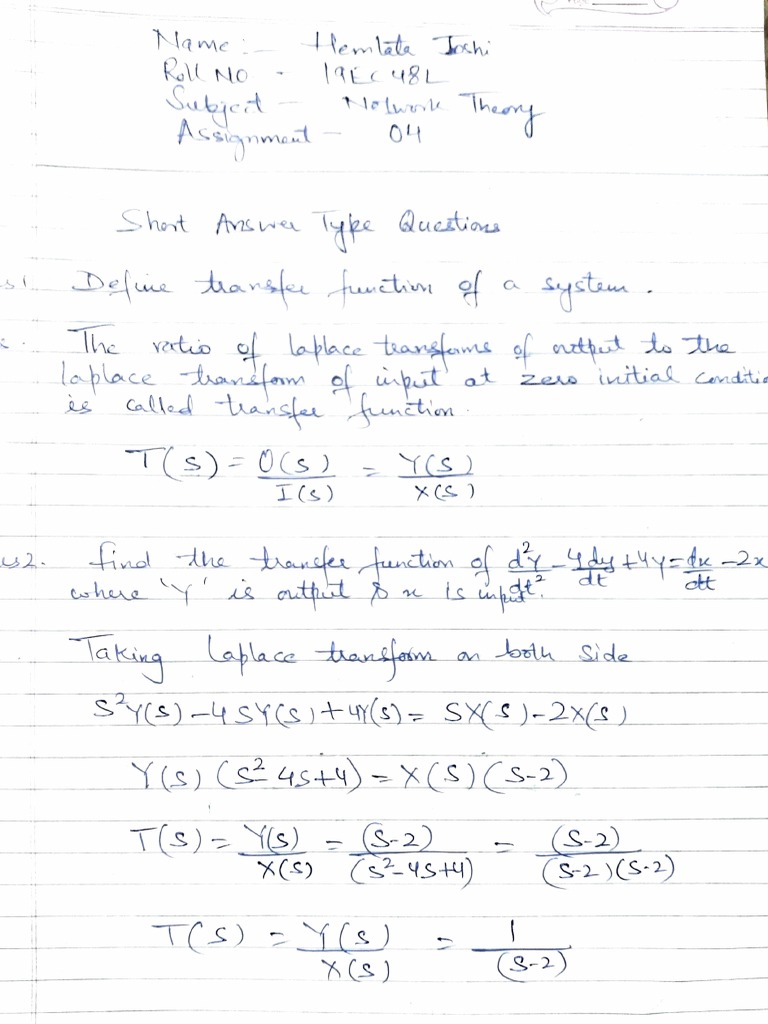 Name :- Hemlata Joshi
Roll NO - 19EC48L
Subject - Network Theory
Assignment - 04
Short Answer Type Questions
Define transfer function of a system.
The ratio of laplace transforms of output to the
laplace transform of input at zero initial conditio
is called transfer function.
T(s) = O(s)/I(s) = Y(s)/X(s)
2. find the transfer function of d²y/dt² - 4dy/dt + 4y = dx/dt - 2x
where 'Y' is output & x is input.
Taking laplace transform on both side
S²Y(s) - 4SY(s) + 4Y(s) = SX(s) - 2X(s)
Y(s) (S² - 4s + 4) = X(s) (S-2)
T(s) = Y(s)/X(s) = (S-2)/(S² - 4S + 4) = (S-2)/(S-2)(S-2)
T(s) = Y(s)/X(s) = 1/(S-2)